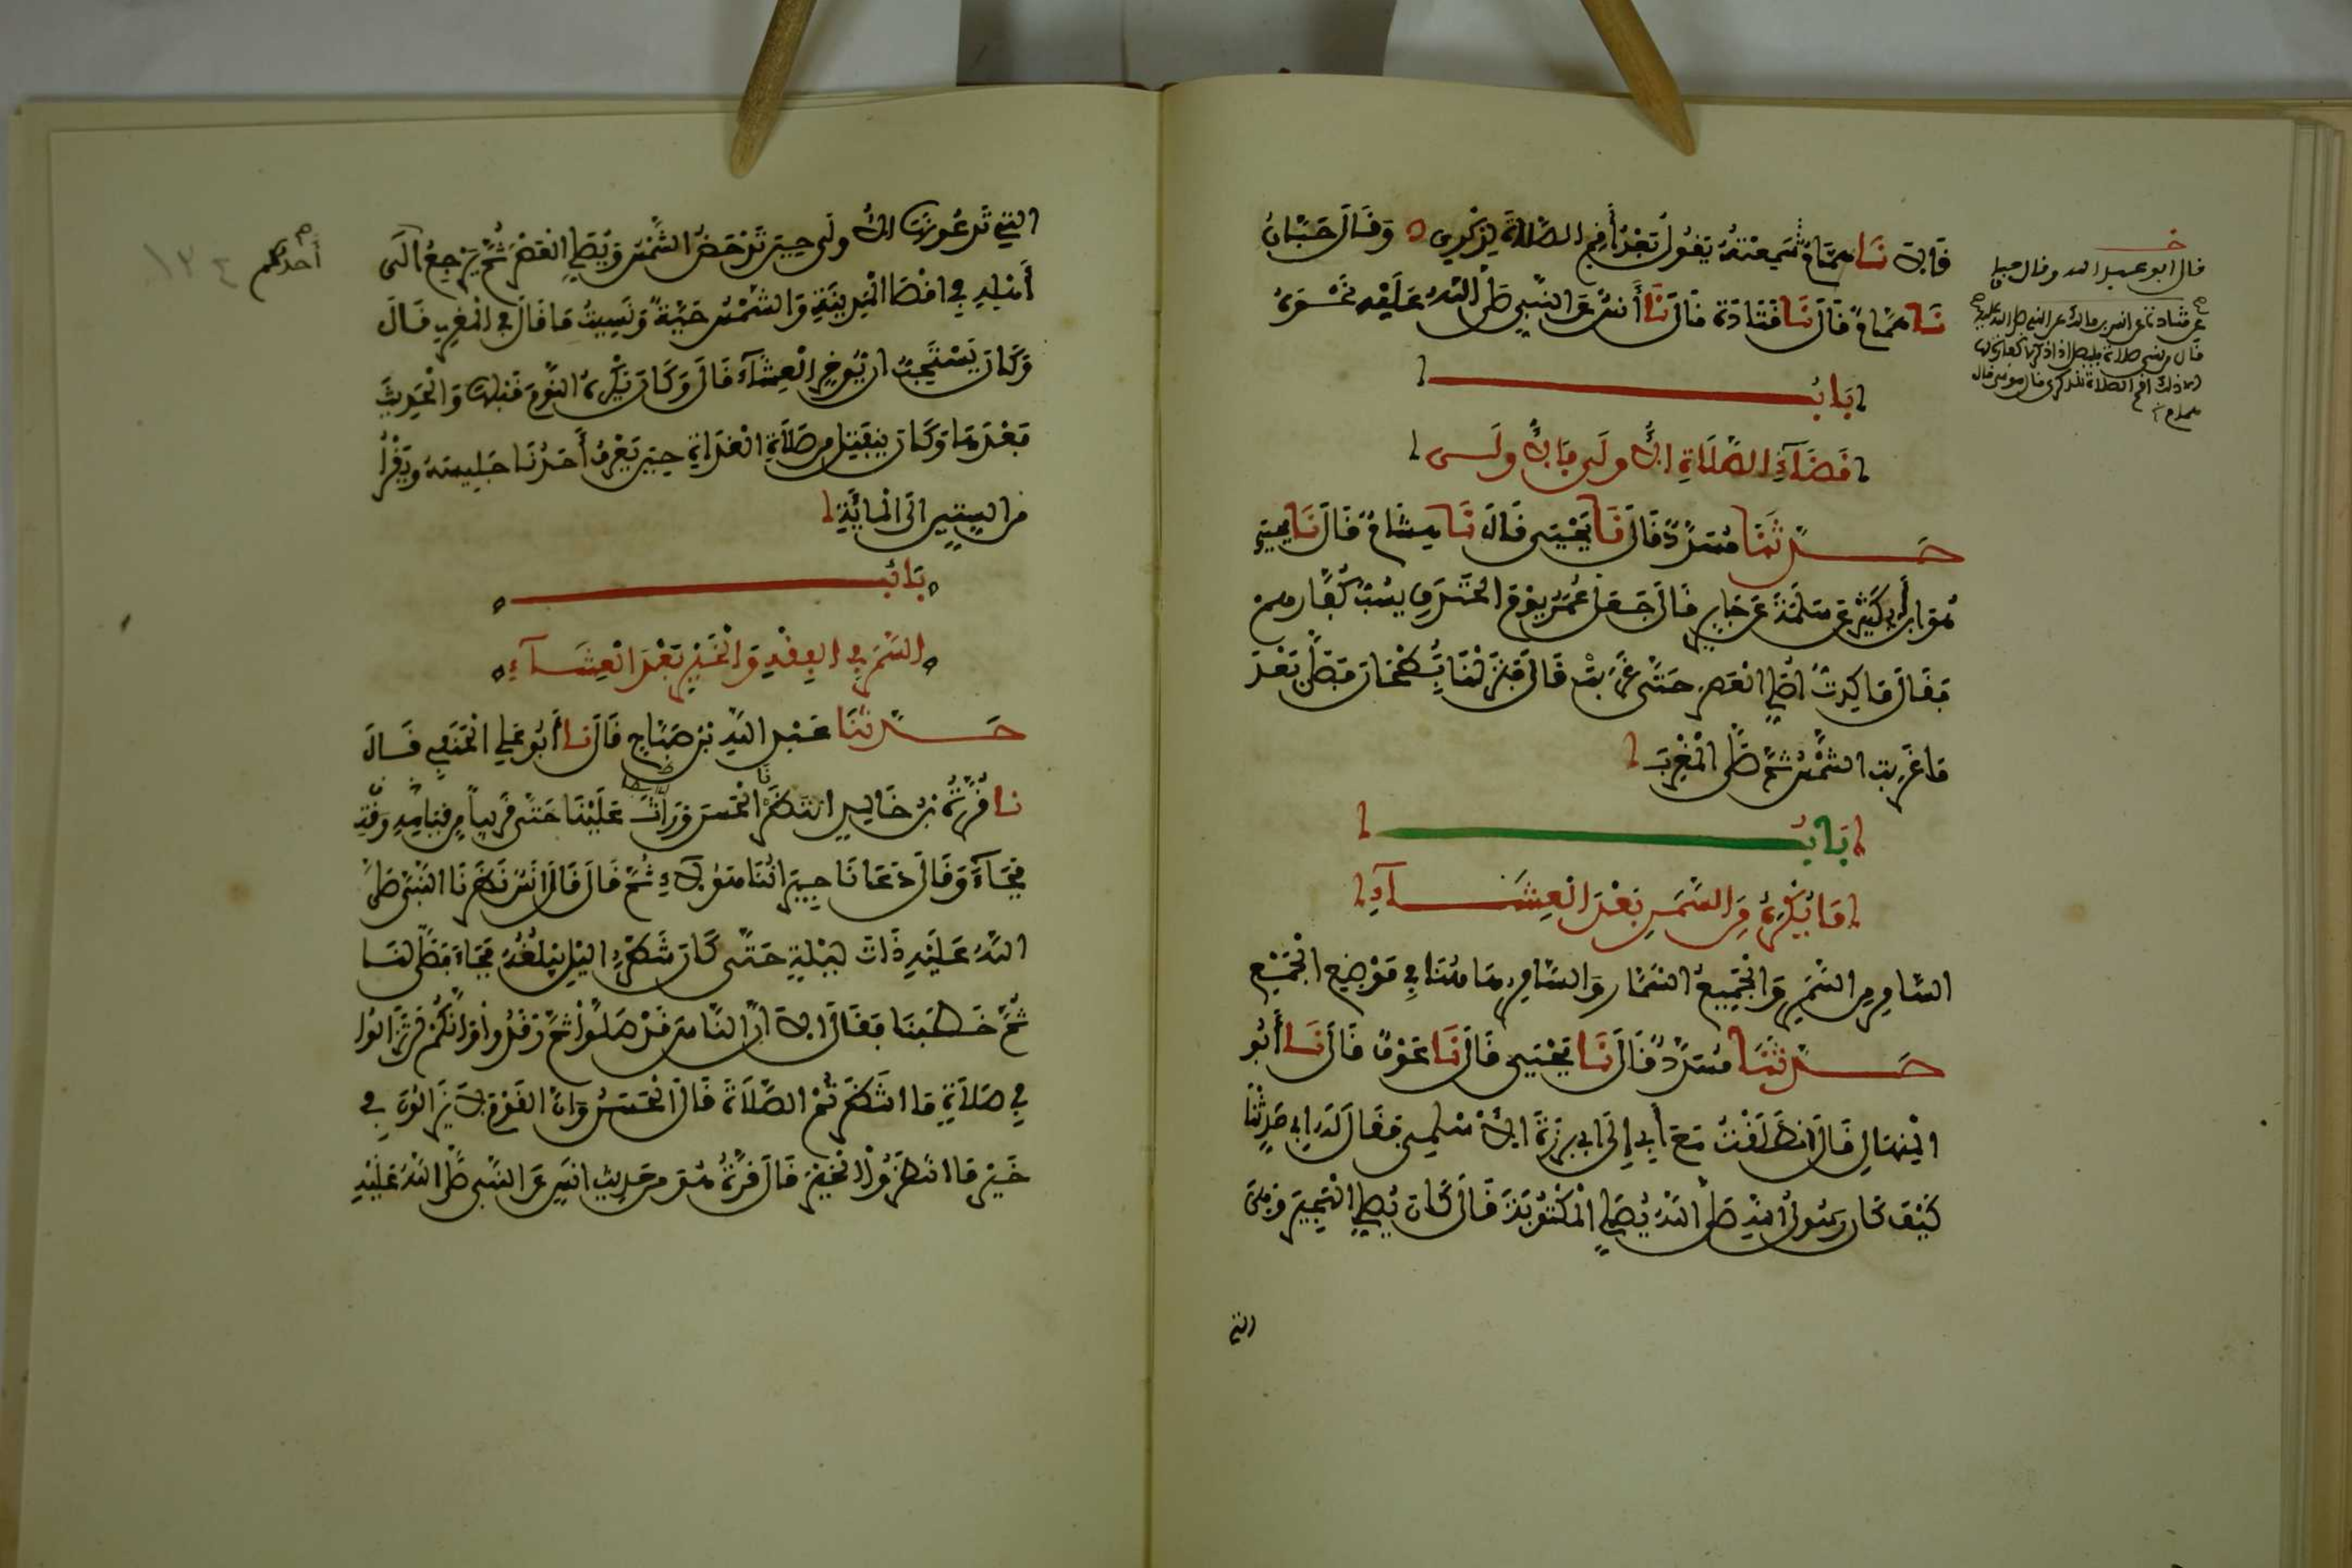 قَالَ نَا هَمَّامٌ سَمِعْتُهُ يَقُولُ بَعْدُ أَقِمِ الصَّلَاةَ لِذِكْرِي وَقَالَ حَبَّانُ
نَا هَمَّامٌ قَالَ نَا قَتَادَةُ قَالَ نَا أَنَسٌ عَنِ النَّبِيِّ صَلَّى اللَّهُ عَلَيْهِ نَحْوَهُ
بَابُ
قَضَاءِ الصَّلَاةِ الْأُولَى فَالْأُولَى
حَدَّثَنَا مُسَدَّدٌ قَالَ نَا يَحْيَى قَالَ نَا هِشَامٌ قَالَ نَا يَحْيَى
هُوَ ابْنُ أَبِي كَثِيرٍ عَنْ أَبِي سَلَمَةَ عَنْ جَابِرٍ قَالَ جَعَلَ عُمَرُ يَوْمَ الْخَنْدَقِ يَسُبُّ كُفَّارَهُمْ
فَقَالَ مَا كِدْتُ أُصَلِّي الْعَصْرَ حَتَّى غَرَبَتْ قَالَ فَنَزَلْنَا بُطْحَانَ فَصَلَّى بَعْدَ
مَا غَرَبَتِ الشَّمْسُ ثُمَّ صَلَّى الْمَغْرِبَ
بَابُ
مَا يُكْرَهُ مِنَ السَّمَرِ بَعْدَ الْعِشَاءِ
السَّامِرُ مِنَ السَّمَرِ وَالْجَمِيعُ السُّمَّارُ وَالسَّامِرُ هَاهُنَا فِي مَوْضِعِ الْجَمِيعِ
حَدَّثَنَا مُسَدَّدٌ قَالَ نَا يَحْيَى قَالَ نَا عَوْفٌ قَالَ نَا أَبُو
الْمِنْهَالِ قَالَ انْطَلَقْتُ مَعَ أَبِي إِلَى أَبِي بَرْزَةَ الْأَسْلَمِيِّ فَقَالَ لَهُ أَبِي حَدِّثْنَا
كَيْفَ كَانَ رَسُولُ اللَّهِ صَلَّى اللَّهُ يُصَلِّي الْمَكْتُوبَةَ قَالَ كَانَ يُصَلِّي الْهَجِيرَ وَهِيَ
التي
قال ابو عبد الله وقال حبان
الَّتِي تَدْعُونَهَا الْأُولَى حِينَ تَدْحَضُ الشَّمْسُ وَيُصَلِّي الْعَصْرَ ثُمَّ يَرْجِعُ إِلَى
أَحَدُكُمْ
أَهْلِهِ فِي أَقْصَى الْمَدِينَةِ وَالشَّمْسُ حَيَّةٌ وَنَسِيتُ مَا قَالَ فِي الْمَغْرِبِ قَالَ
وَكَانَ يَسْتَحِبُّ أَنْ يُؤَخِّرَ الْعِشَاءَ قَالَ وَكَانَ يَكْرَهُ النَّوْمَ قَبْلَهَا وَالْحَدِيثَ
بَعْدَهَا وَكَانَ يَنْفَتِلُ مِنْ صَلَاةِ الْغَدَاةِ حِينَ يَعْرِفُ أَحَدُنَا جَلِيسَهُ وَيَقْرَأُ
مِنَ السِّتِّينَ إِلَى الْمِائَةِ
بَابُ
السَّمَرِ فِي الْفِقْهِ وَالْخَيْرِ بَعْدَ الْعِشَاءِ
حَدَّثَنَا عَبْدُ اللَّهِ بْنُ صَبَّاحٍ قَالَ نَا أَبُو عَلِي الْحَنَفِي قَالَ
نَا قُرَّةُ بْنُ خَالِدٍ انْتَظَرْنَا الْحَسَنَ وَرَاثَ عَلَيْنَا حَتَّى قَرِيباً مِنْ قِيَامِهِ وَقْتِ
فَجَاءَ وَقَالَ دَعَانَا جِيرَانُنَا هَؤُلَاءِ ثُمَّ قَالَ قَالَ أَنَسٌ نَظَرْنَا النَّبِيَّ صَلَّى
اللَّهُ عَلَيْهِ ذَاتَ لَيْلَةٍ حَتَّى كَانَ شَطْرُ اللَّيْلِ يَبْلُغُهُ فَجَاءَ فَصَلَّى لَنَا
ثُمَّ خَطَبَنَا فَقَالَ أَلَا إِنَّ النَّاسَ قَدْ صَلَّوْا ثُمَّ رَقَدُوا وَإِنَّكُمْ لَمْ تَزَالُوا
فِي صَلَاةٍ مَا انْتَظَرْتُمُ الصَّلَاةَ قَالَ الْحَسَنُ وَإِنَّ الْقَوْمَ لَا يَزَالُونَ فِي
خَيْرٍ مَا انْتَظَرُوا الْخَيْرَ قَالَ قُرَّةُ هُوَ مِنْ حَدِيثِ أَنَسٍ عَنِ النَّبِيِّ صَلَّى اللَّهُ عَلَيْهِ